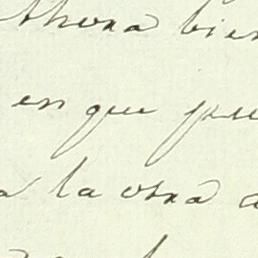 Ahora bien
en que pu
a la otra a